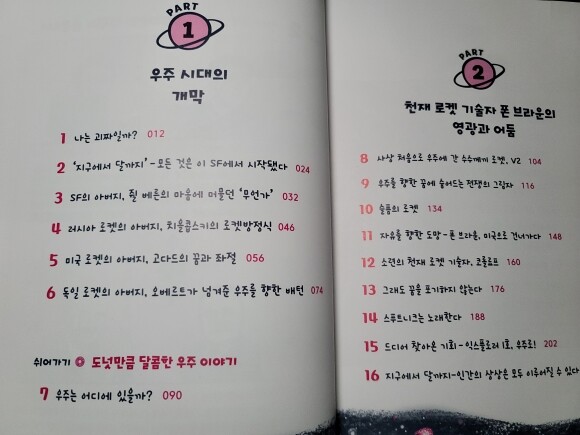 PART
1
우주 시대의
개막
1 나는 괴짜일까? 012
2 '지구에서 달까지' - 모든 것은 이 SF에서 시작됐다 024
3 SF의 아버지, 쥘 베른의 마음에 머물던 '무언가' 032
4 러시아 로켓의 아버지, 치올콥스키의 로켓방정식 046
5 미국 로켓의 아버지, 고다드의 꿈과 좌절 056
6 독일 로켓의 아버지, 오베르트가 넘겨준 우주를 향한 배턴 074
쉬어가기 도넛만큼 달콤한 우주 이야기
7 우주는 어디에 있을까? 090
PART
2
천재 로켓 기술자 폰 브라운의
영광과 어둠
8 사상 처음으로 우주에 간 수수께끼 로켓, V2 104
9 우주를 향한 꿈에 숨어드는 전쟁의 그림자 116
10 슬픔의 로켓 134
11 자유를 향한 도망 - 폰 브라운, 미국으로 건너가다 148
12 소련의 천재 로켓 기술자, 코롤료프 160
13 그래도 꿈을 포기하지 않는다 176
14 스푸트니크는 노래한다 188
15 드디어 찾아온 기회 - 익스플로러 1호, 우주로! 202
16 지구에서 달까지 - 인간의 상상은 모두 이루어질 수 있다